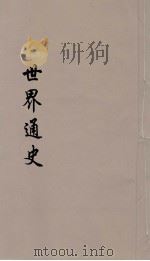 研狗
世界通史
mtoou.info
mtoou.info